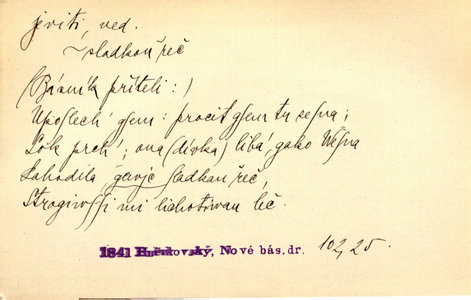 jeviti, ved.
~ sladkou řeč
(Básník příteli:)
Uposlech' gsem: procit gsem tu se sna;
Sok prchl; ona (dívka) libá, gako Wesna
Lahodila gewje sladkau řeč,
Strogiwssi mi lichotiwau léč.
1841 Hněvkovský, Nové bás. dr. 102, 25.